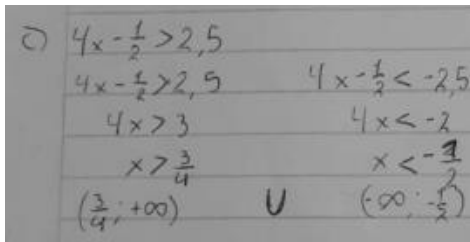 c) 4x - 1/2 > 2,5
4x - 1/2 > 2,5 4x - 1/2 < -2,5
4x > 3 4x < -2
x > 3/4 x < -1/2
(3/4; +∞) U (-∞; -1/2)